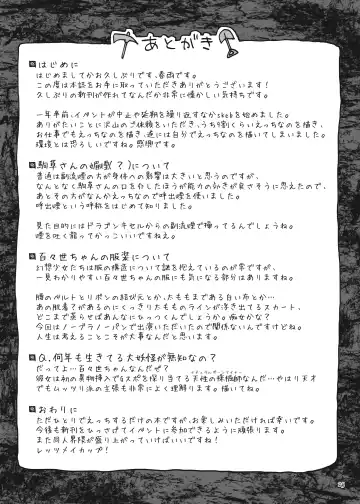 あとがき
はじめに
はじめましてかお久しぶりです、春雨です。
この度は本誌をお手に取っていただきありがとうございます!
久しぶりの新刊が作れてなんだか非常に懐かしい気持ちです。
一年半前、イベントが中止や延期を繰り返すなかskebを始めました。
ありがたいことに沢山のご依頼をいただき、うち9割くらいえっちなのを描き、
お仕事でもえっちなのを描き、遂には自分でえっちなのを描いてしまいました。
環境とは恐ろしいですね。感無です。
駒草さんの煙獣?)について
普通は副流煙の方が身体への影響は大きいと思うのですが、
なんとなく駒草さんの口を介したほうが能力の効きが良さそうに思えて、
あとその方がなんかえっちなので呼出煙を使いました。
呼出煙という呼称をはじめて知りました。
見た目的にはドラゴンキセルからの副流煙で獲ってるんでしょうね。
煙を吐く龍ってかっこいいですねえ。
百々世ちゃんの服装について
幻想少女たちは服の構造について謎を抱えているのが常ですが、
一見わかりやすい百々世ちゃんの服にも気になる部分はありますね。
腰のベルトとリボンの結び元とか、太ももまである白い布とか…
あの脱着するのにくっきり太もものラインが浮き出てるスカート、
どこまで蒸らせばあんなにひっつくんでしょうか。痴女かな?
今回はノーブラノーパンで出演いただいたので関係ないんですけどね。
人生は考えることこそが大事なんだと思います。
Q.何年も生きてる大妖怪が無知なの?
だってよ…百々世ちゃんなんだぜ?
彼女は初の異物挿入でGスポを探り当てる天性の採掘師なんだ…やはり天才
でもムッツリ派の主張も非常によく理解ります。描いてね。
おわりに
ただひたすらえっちするだけの本ですが、お楽しみいただければ幸いです。
今後も新刊をひっさげてイベントに参加できるように頑張ります。
また同人界隈が盛り上がっていけばいいですね!
レッツメイカップ!